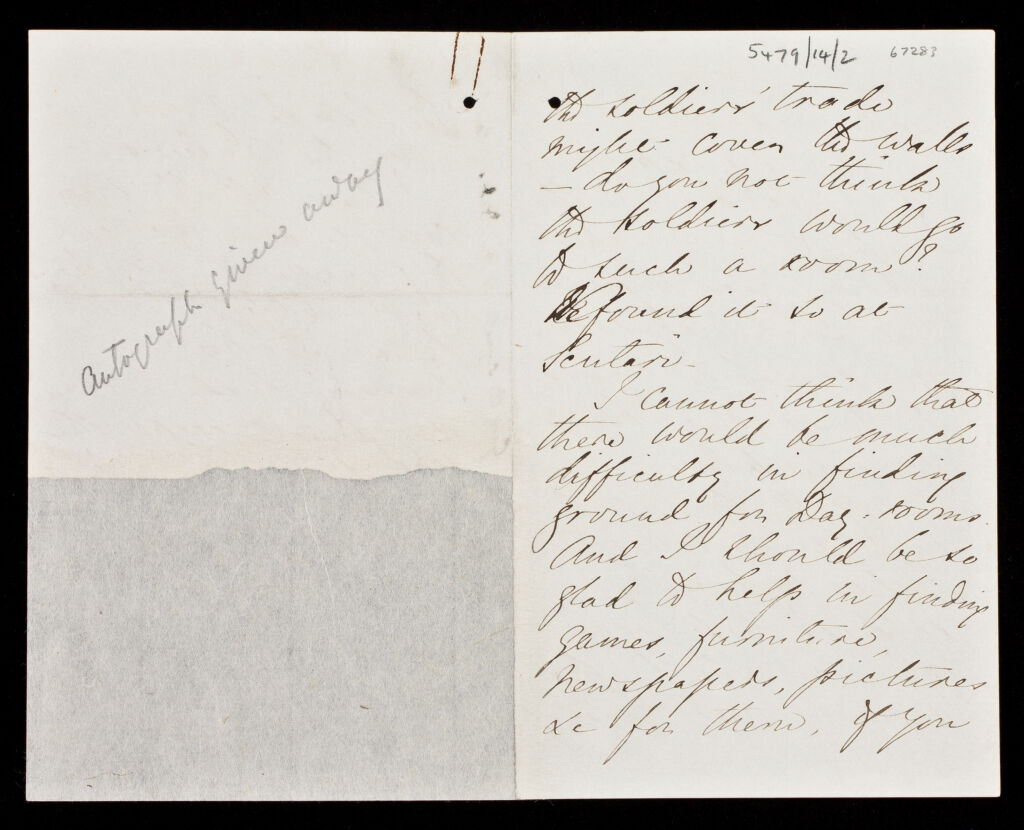 Autograph given away
5479/14/2 67283
the soldiers' trade
might cover the walls
- do you not think
the soldiers would go
to such a room?
We found it so at
Scutari -
I cannot think that
there would be much
difficulty in finding
ground for Day-rooms.
And I should be so
glad to help in finding
games, furniture,
newspapers, pictures
&c for them, if you